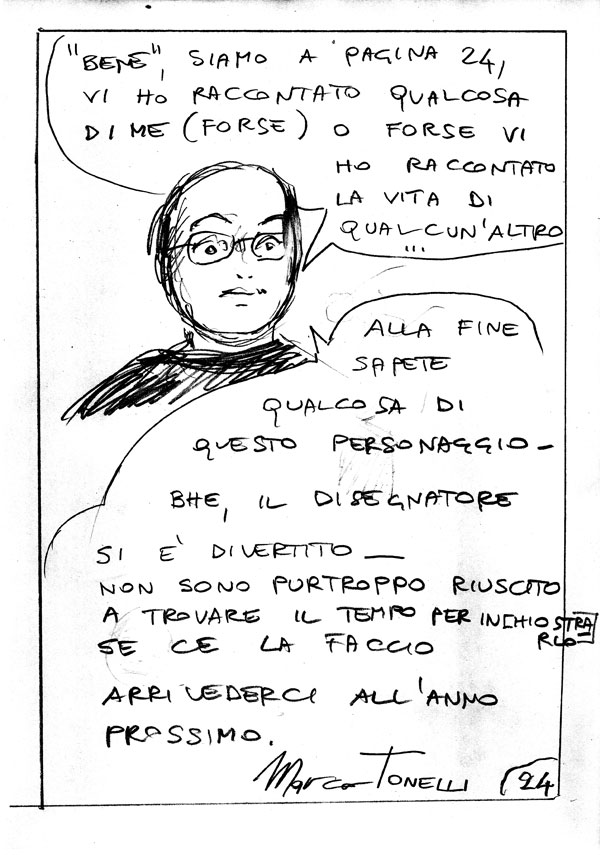 "BENE", SIAMO A PAGINA 24,
VI HO RACCONTATO QUALCOSA
DI ME (FORSE) O FORSE VI
HO RACCONTATO
LA VITA DI
QUALCUN'ALTRO
...
ALLA FINE
SAPETE
QUALCOSA DI
QUESTO PERSONAGGIO –
BHE, IL DISEGNATORE
SI E' DIVERTITO —
NON SONO PURTROPPO RIUSCITO
A TROVARE IL TEMPO PER INCHIOSTRA
RLO
SE CE LA FACCIO
ARRIVEDERCI ALL'ANNO
PROSSIMO.
Marco TONELLI
24